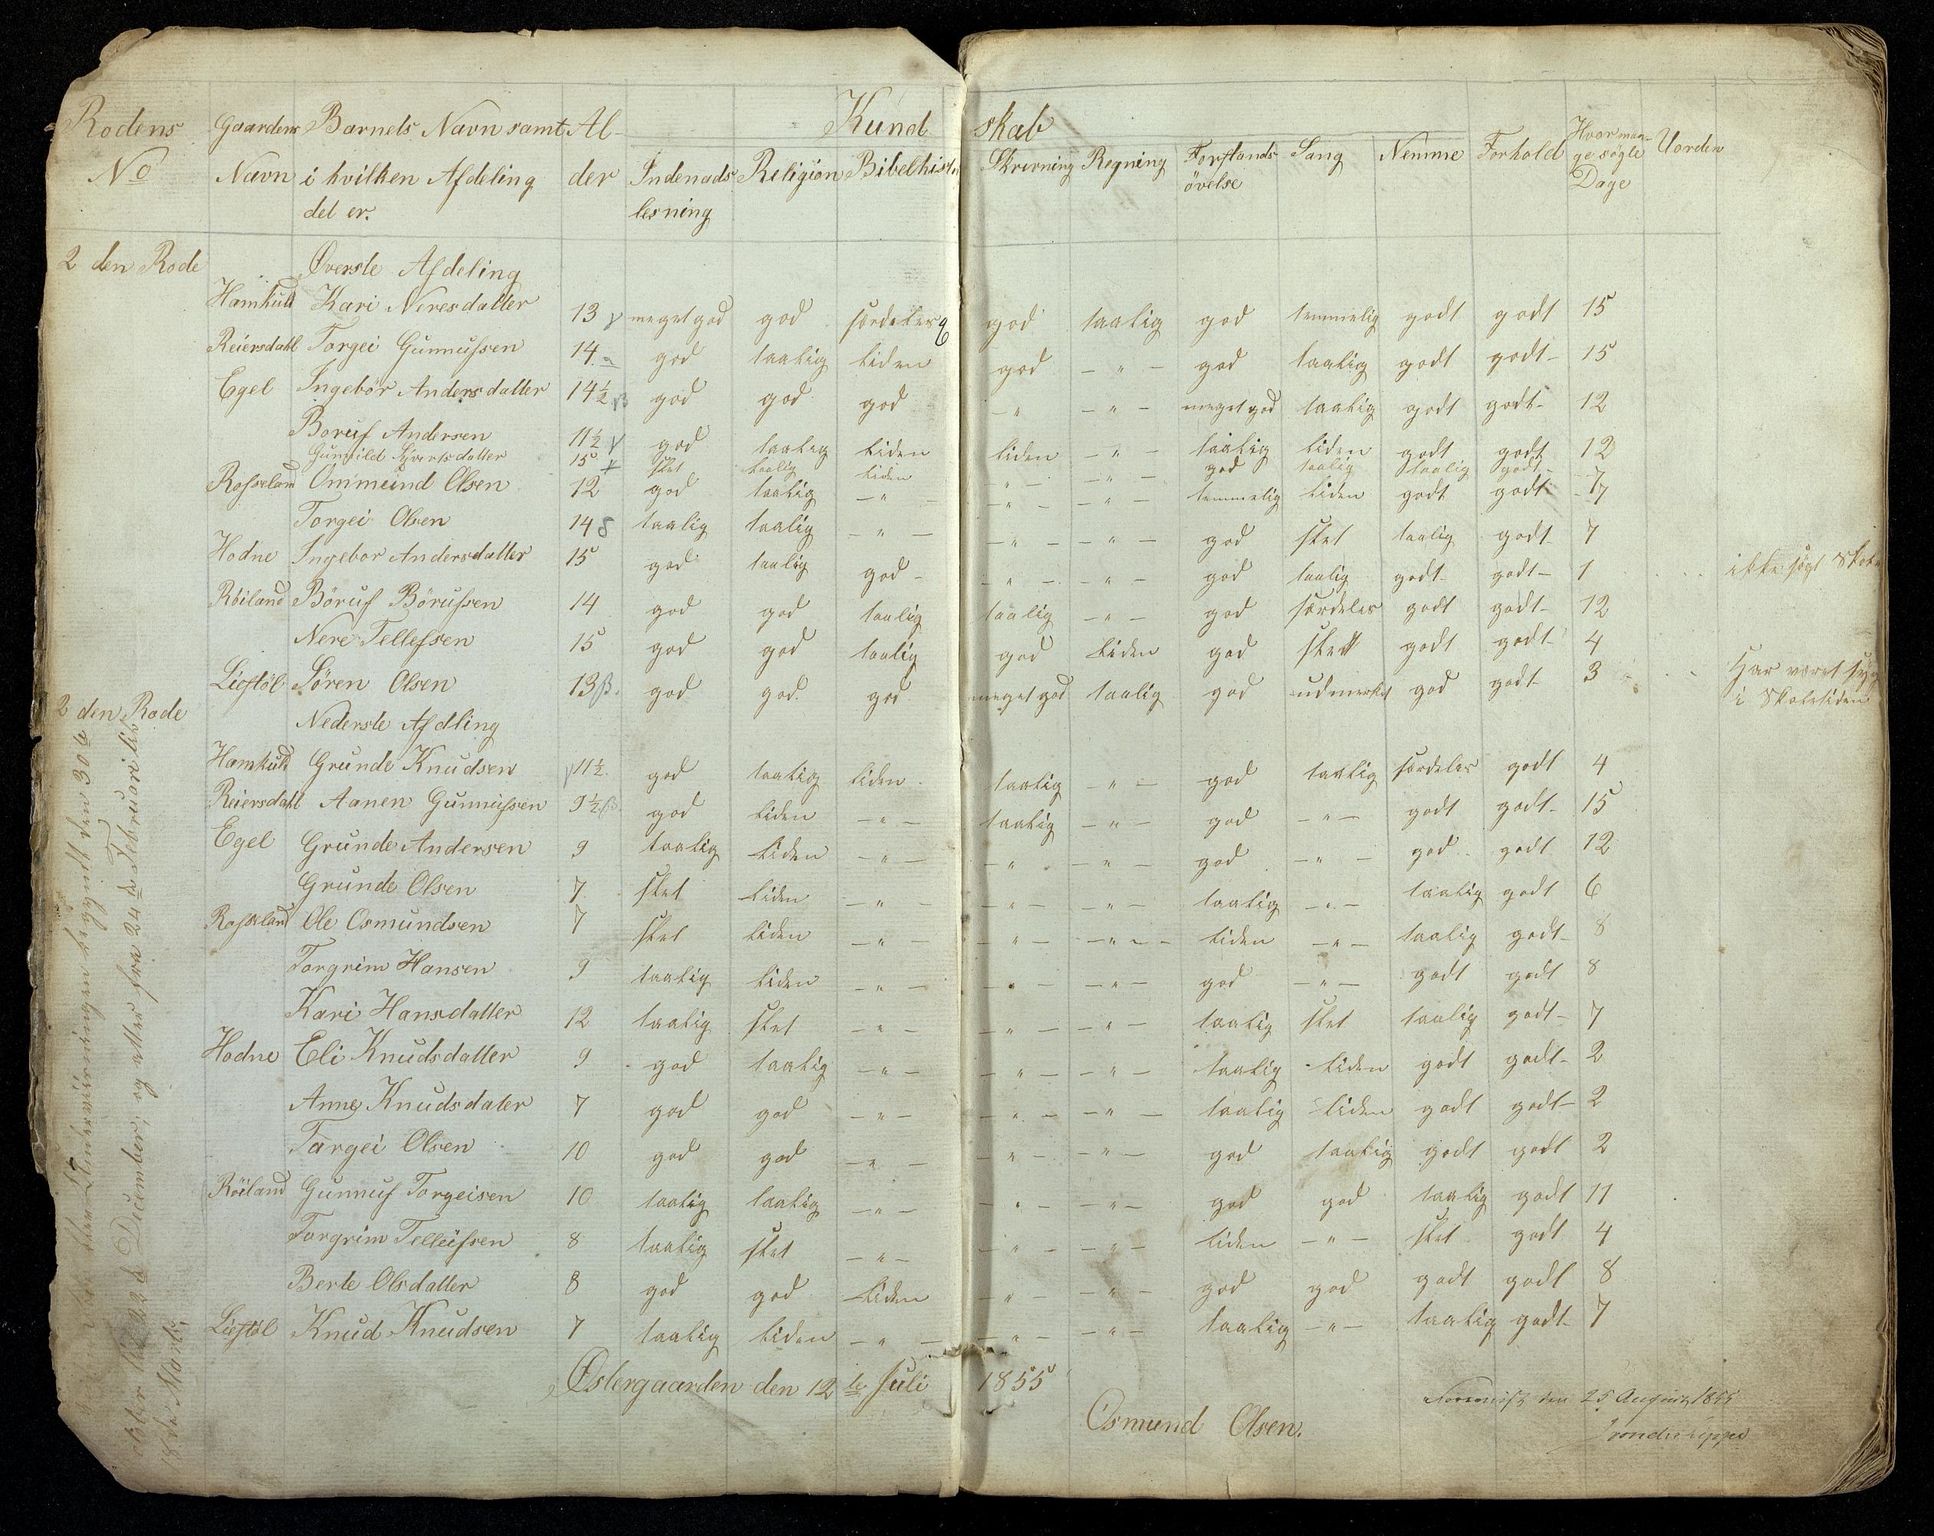 Rodens Gaardens Barnets Navn samt Al- Kund skab
No Navn i hvilken Afdeling der Indenads Religion Bibelhist Skrivning Regning Forstands Sang Nemme Forhold Hvor man- Uorden
det er. lesning övelse ge søgte
Dage
2 den Rode Øverste Afdeling
Hamkuld Kari Neresdatter 13 meget god god særdeles god taalig god temmelig godt godt 15
Reiersdahl Torgei Gunnufsen 14 god taalig liden god - " - god taalig godt godt 15
Egel Ingebor Andersdatter 14½ god god god - " - " - meget god taalig godt godt 12
Boruf Andersen 11½ god taalig liden liden - " - taalig liden godt godt 12
Gunild Syvertsdatter 15 slet taalig liden - " - - " - god taalig taalig godt 7
Rosseland Ommund Olsen 12 god taalig - " - - " - " - temmelig liden godt godt 7
Torgei Olsen 14 taalig taalig - " - - " - - " - god slet taalig godt 7
Hodne Ingebor Andersdatter 15 god taalig god - " - - " - god taalig godt godt 1 ikke søgt Skole
Röiland Böruf Börufsen 14 god god taalig taalig - " - god særdeles godt godt 12
Nere Tellefsen 15 god god taalig god liden god slett godt godt 4
Liestöl Sören Olsen 13 god god god meget god taalig god udmerket god godt 3 Har været syg
i Skoletiden
2 den Rode Nederste Afdling
Hamkuld Grunde Knudsen 11½ god taalig liden taalig - " - god taalig særdeles godt 4
Reiersdahl Aanen Gunnufsen 9½ god liden - " - taalig - " - god - " - godt godt 15
Egel Grunde Andersen 9 taalig liden - " - - " - - " - god - " - god godt 12
Grunde Olsen 7 slet liden - " - - " - - " - taalig - " - taalig godt 6
Rosseland Ole Osmundsen 7 slet liden - " - - " - - " - liden - " - taalig godt 8
Torgrim Hansen 9 taalig liden - " - - " - - " - god - " - godt godt 8
Kari Hansdatter 12 taalig slet - " - - " - - " - taalig slet taalig godt 7
Hodne Eli Knudsdatter 9 god taalig - " - - " - - " - taalig liden godt godt 2
Anne Knudsdater 7 god god - " - - " - - " - taalig liden godt godt 2
Targei Olsen 10 god god - " - - " - - " - god taalig godt godt 2
Röiland Gunnuf Torgeisen 10 taalig taalig - " - - " - - " - god god taalig godt 11
Torgrim Tellefsen 8 taalig slet - " - - " - - " - liden - " - slet godt 4
Berte Olsdatter 8 god god liden - " - - " - god god godt godt 8
Liestöl Knud Knudsen 7 taalig liden - " - - " - - " - taalig - " - taalig godt 7
Östergaarden den 12te Juli 1855
Osmund Olsen.
den 25 August 1855
Undervisningen begyndt den 30te
October til 22de December, og atter fra 24de Februari til
Marts